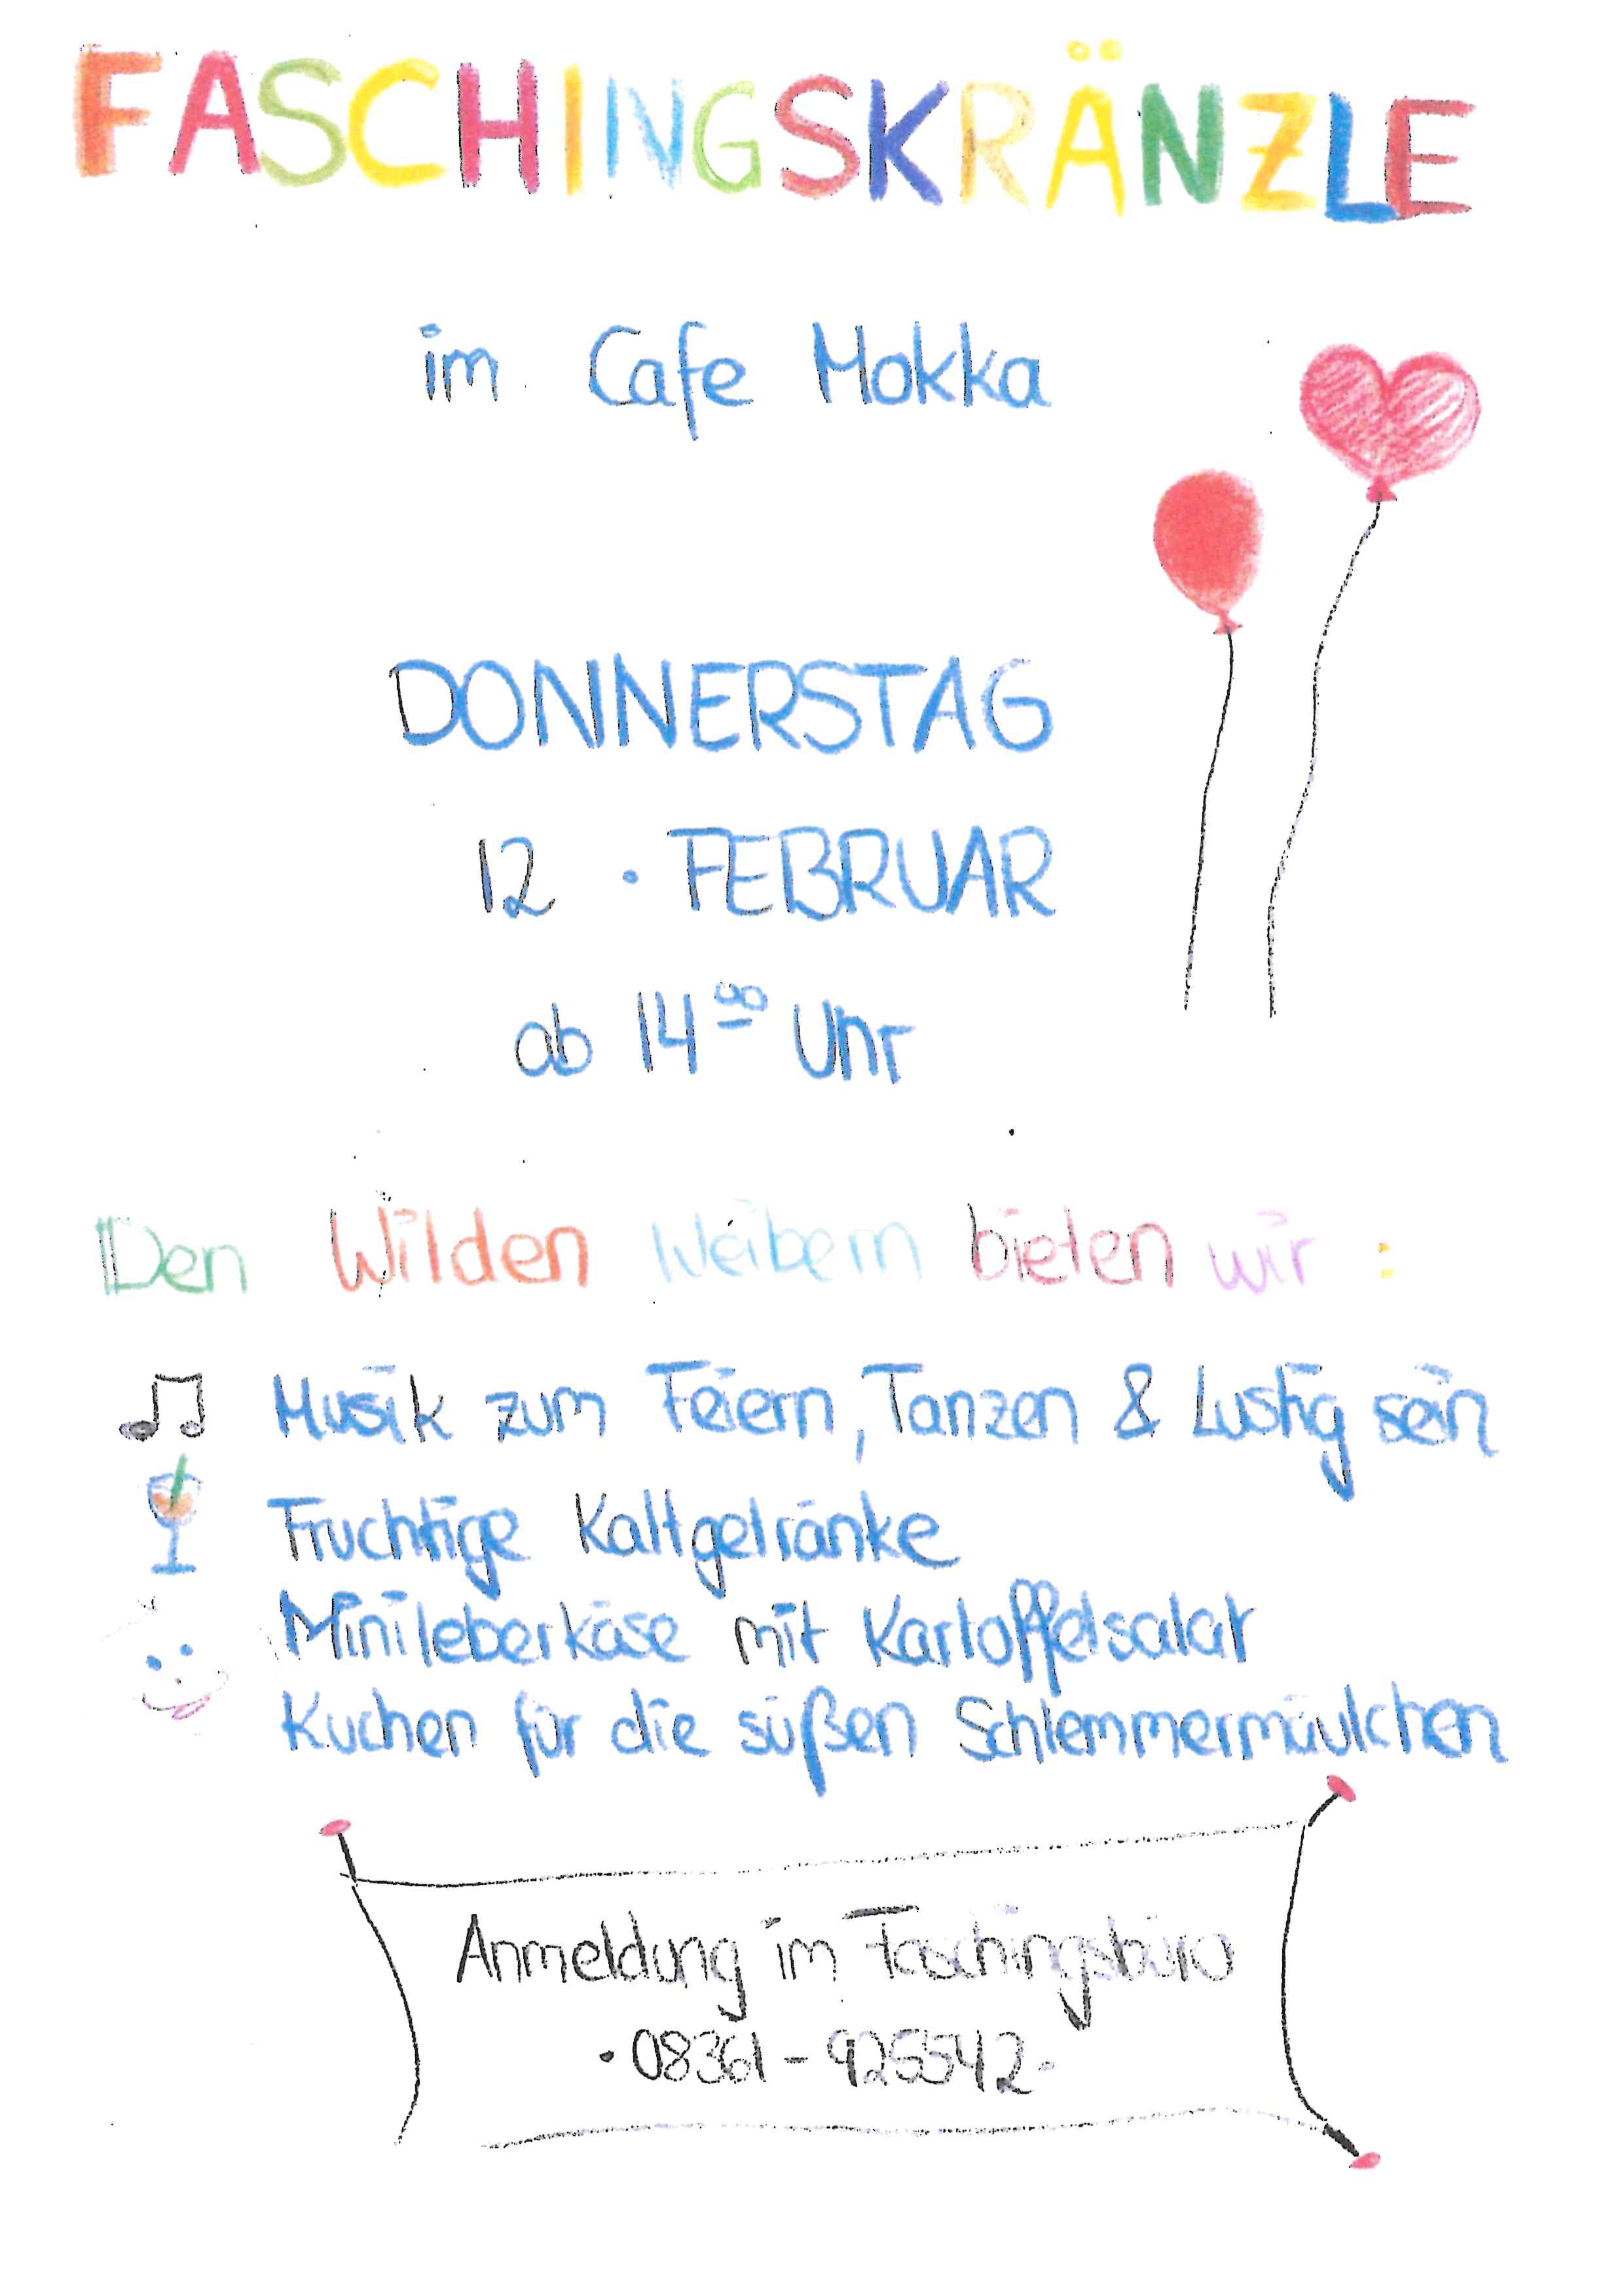 FASCHINGSKRÄNZLE
im Cafe Mokka
DONNERSTAG
12. FEBRUAR
ab 14⁰⁰ Uhr
Den Wilden Weibern bieten wir:
Musik zum Feiern, Tanzen & Lustig sein
Fruchtige Kaltgetränke
Minileberkäse mit Kartoffelsalat
Kuchen für die süßen Schlemmermäulchen
Anmeldung im Faschingsbüro
· 08361-925542 ·